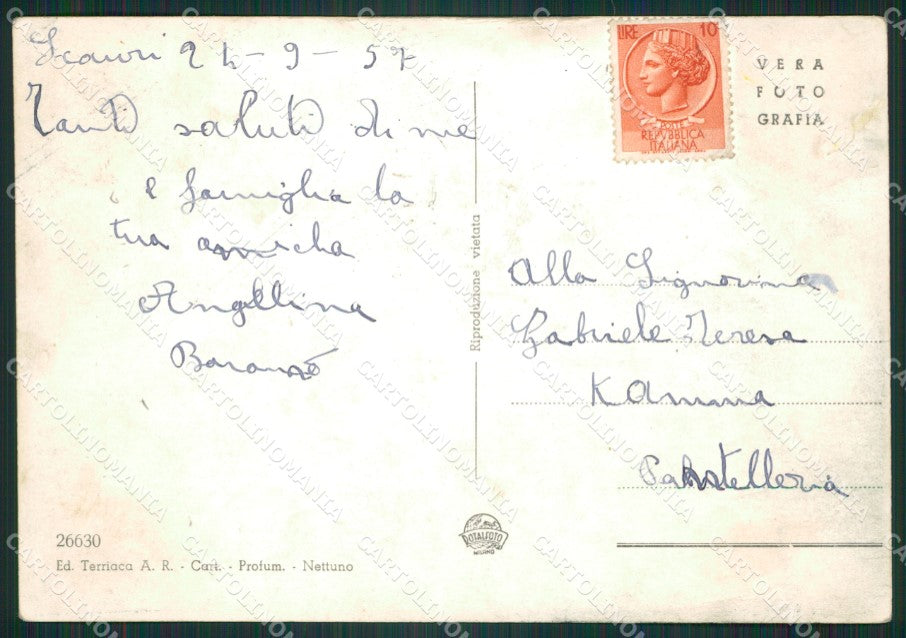 Scauri 24-9-57
Tanti saluti di me
e famiglia la
tua amicha
Angellina
LIRE 10
POSTE
REPVBBLICA
ITALIANA
VERA
FOTO
GRAFIA
Riproduzione vietata
Alla Signorina
Gabriele Teresa
KAmma
Pantelleria
ROTALFOTO
MILANO
26630
Ed. Terriaca A. R. - Cart. - Profum. - Nettuno
CARTOLINOMANIA